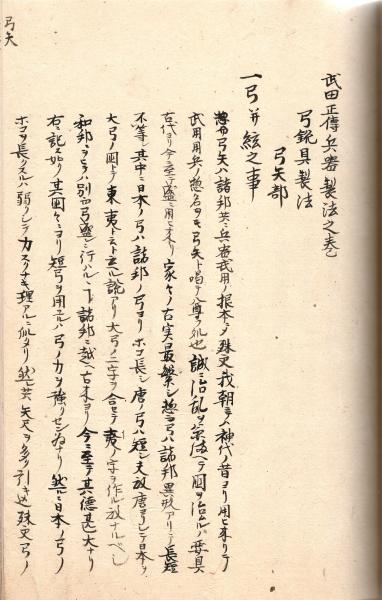 弓矢
武田正傳兵器製法之巻
弓銃具製法
弓矢部
一弓并絃之事
弓矢ハ諸邦共ニ兵器武用ノ根本ナリ殊更我朝ニテハ神代ノ昔ヨリ用ヒ来リテ
武用用兵ノ惣名ヲモ弓矢ト唱テ尊フ処也誠ニ治乱ヲ テ国ヲ治ムルノ要具
古代ヨリ今ニ至テ盛ニ用ヒ来リ家々ノ古実最繁シ惣テ弓ハ諸邦異形アリテ長短
不等シ其中ニ日本ノ弓ハ諸邦ノ弓ヨリホコ長シ唐ノ弓ハ短シ夫故唐ヨリシテ日本ヲ
大弓ノ国ト云東夷ト云ト云ル説アリ大弓ノ二字ヲ合セテ夷ノ字ヲ作ル故ナルベシ
和邦 ハ別而弓盛ニ行ハル 諸邦ニ越ヘ古来ヨリ今ニ至テ其徳甚大ナリ
右ニ記ス如ク其国々ニヨリ短弓ヲ用ユルハ弓ノ力ヲ強クセン為ナリ然ルニ日本ノ弓ノ
ホコヲ長クスルハ弱クシテ力スクナキ理アルニ似タリ然共矢尺ヲ多ク引キ込殊更弓ノ